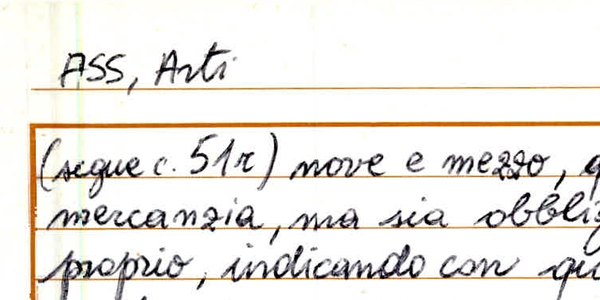 ASS, Arti
(segue c. 51r) nove e mezzo,
mercanzia, ma sia
proprio, indicando con